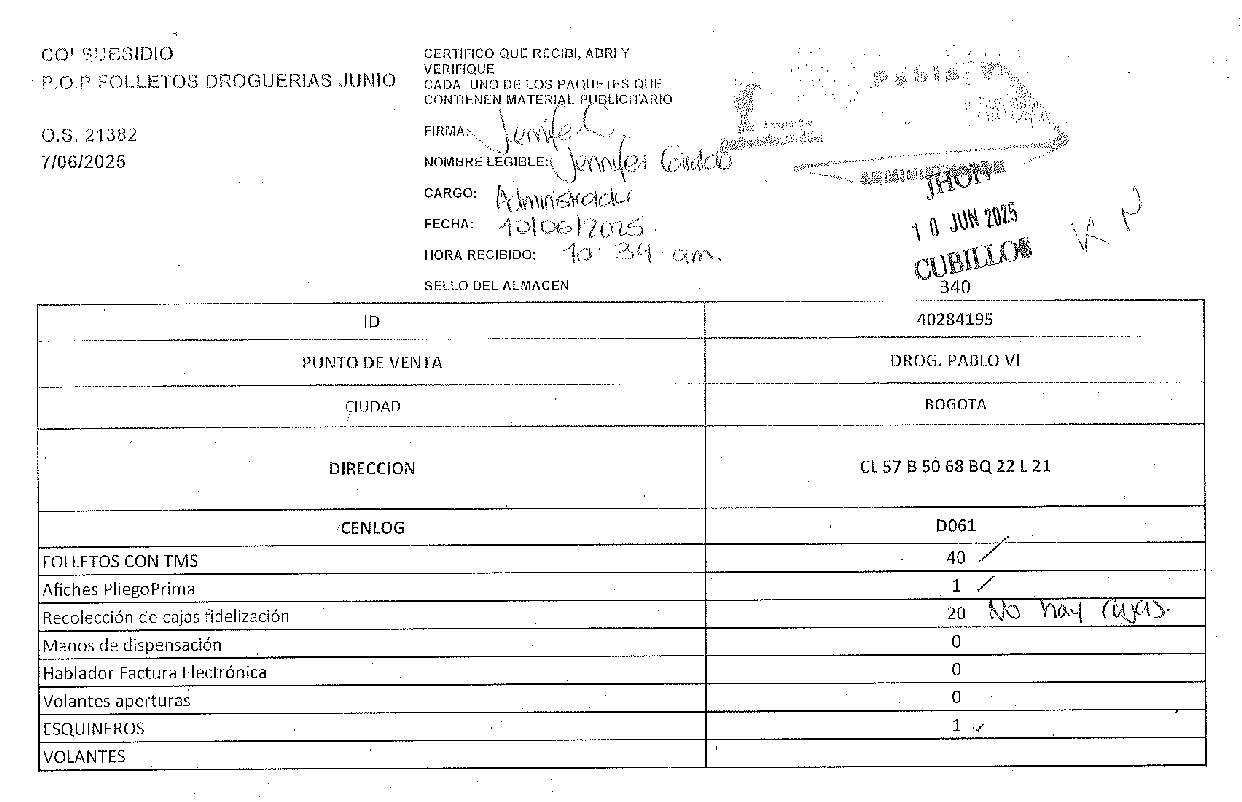 COLSUBSIDIO
P.O.P FOLLETOS DROGUERIAS JUNIO
O.S. 21382
7/06/2025
CERTIFICO QUE RECIBI, ABRI Y
VERIFIQUE
CADA UNO DE LOS PAQUETES QUE
CONTIENEN MATERIAL PUBLICITARIO
FIRMA: Jennifer C.
NOMBRE LEGIBLE: Jennifer
CARGO: Administrador
FECHA: 10/06/2025.
HORA RECIBIDO: 10:34 am.
SELLO DEL ALMACEN
PABLO VI
JHON
10 JUN 2025
CUBILLOS
340
ID 40284195
PUNTO DE VENTA DROG. PABLO VI
CIUDAD BOGOTA
DIRECCION CL 57 B 50 68 BQ 22 L 21
CENLOG D061
FOLLETOS CON TMS 40
Afiches PliegoPrima 1
Recolección de cajas fidelización 20 No hay cajas.
Manos de dispensación 0
Hablador Factura Electrónica 0
Volantes aperturas 0
ESQUINEROS 1
VOLANTES